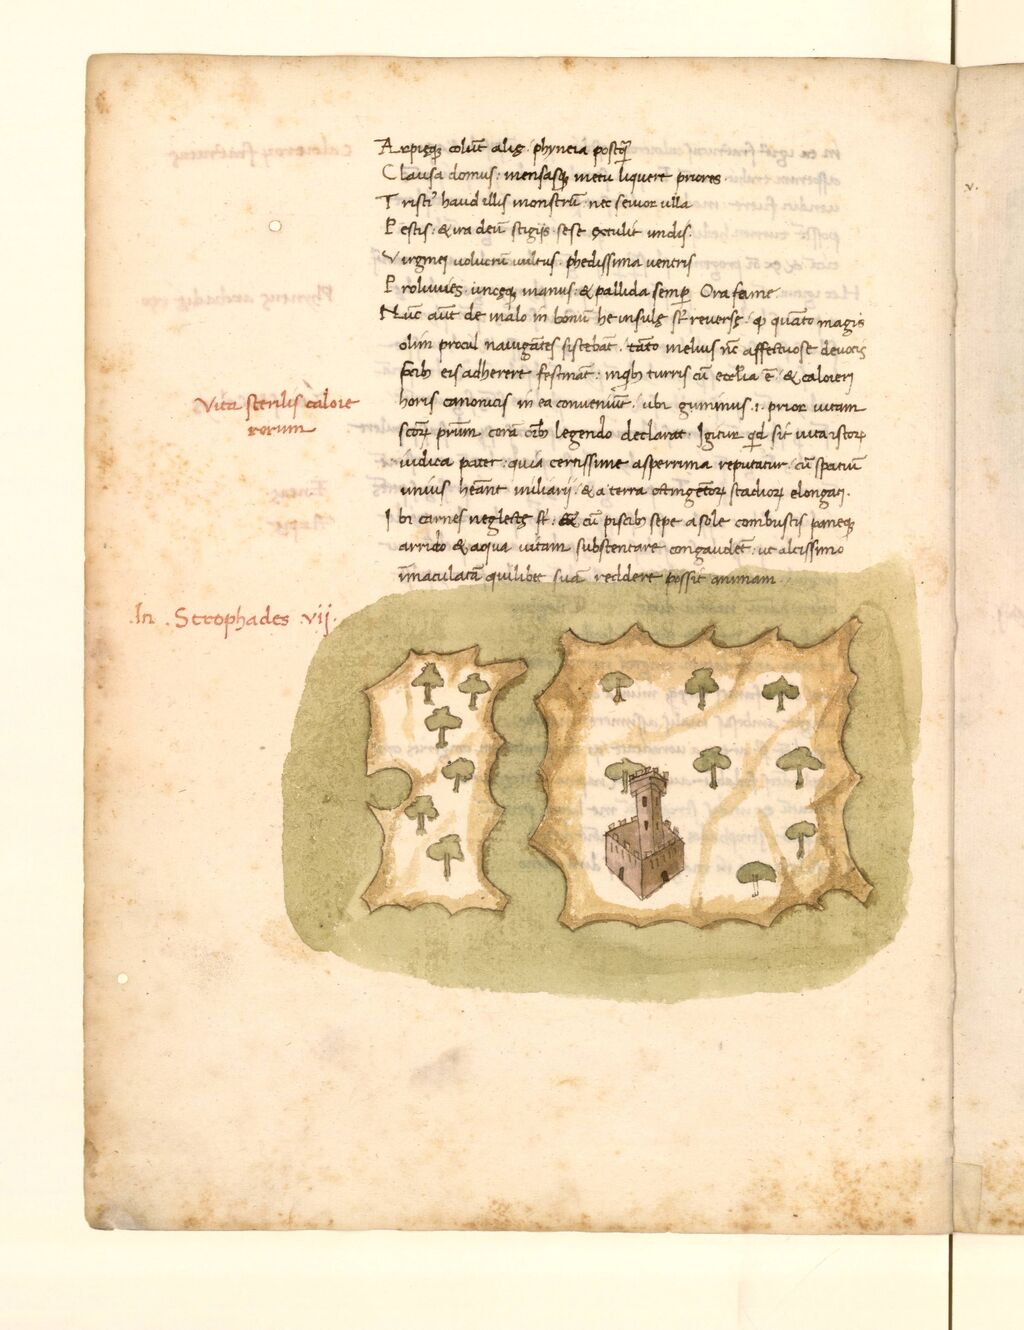 Arpięq̨ colūt alię. phyneia postq̄
Clausa domus: mensasq̨ metu liquere priores.
Tristi᾽ haud illis monstrū: nec sevior ulla
Pestis: & ira deū stigijs sese extulit undis.
Virginei volucrū vultus. phedissima ventris
Proluvies. unceq̨ manus: & pallida semp̄ Ora fame
Nūc aūt de malo in bonū he insulę sr̄ reversę. quāto magis
olim procul navigātes sistebāt. tāto melius nc̄ affectuose devotis
eis adherere festināt: turris cū ecclīa ē. & caloieri
horis canonicis in ea conveniūt. ubi guminus .i. prior vitam
scōꝝ prum̄ corā legendo declarat. Igitur qd̄ sit vita istoꝝ
iudica pater: quia certissime asperrima reputatur. cū spatiū
unius heānt miliarij. & a terra stadioꝝ elongati.
Ibi carnes neglectę sr̄. cū piscib᾽ sepe a sole combustis paneq̨
arrido & aqua vitam substentare congaudēt. ut alcissimo
īmaculatā quilibet suā reddere possit animam.
Vita sterilis caloie
rorum
.In. Strophades vij.
v.